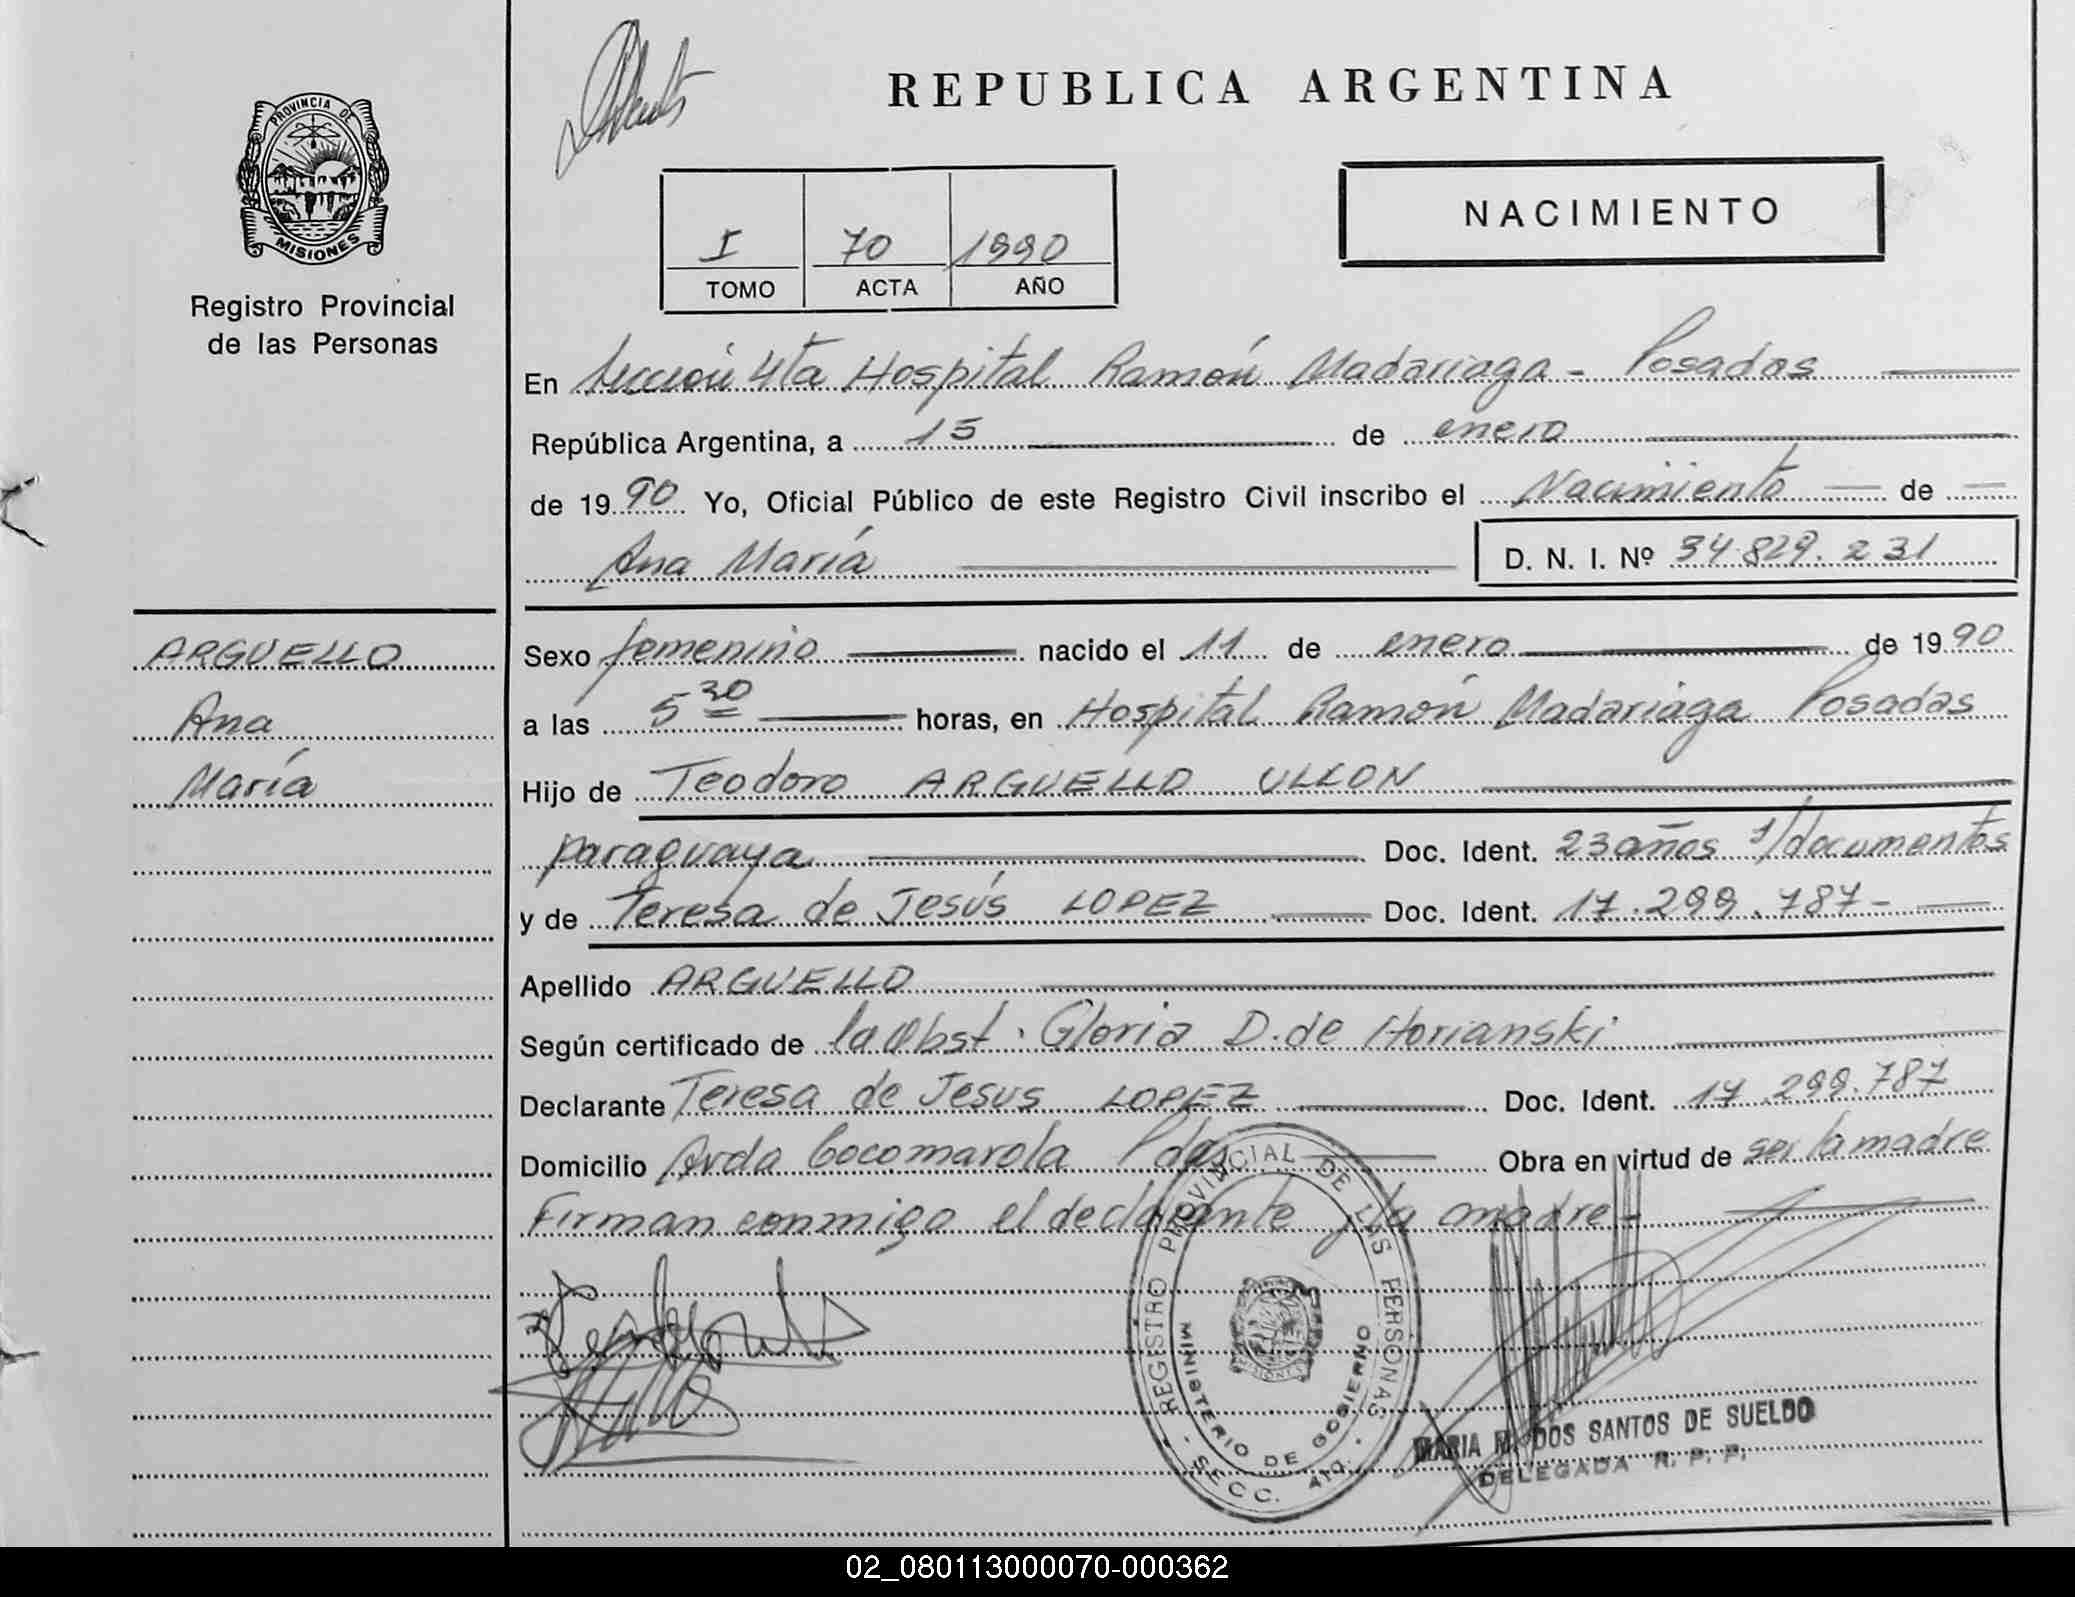 REPUBLICA ARGENTINA
PROVINCIA DE
MISIONES
Registro Provincial
de las Personas
I 70 1990
TOMO ACTA AÑO
NACIMIENTO
En Sección 4ta Hospital Ramón Madariaga - Posadas
República Argentina, a 15 de enero
de 1990 Yo, Oficial Público de este Registro Civil inscribo el Nacimiento de
Ana María D. N. I. Nº 34.829.231
ARGUELLO
Ana
María
Sexo femenino nacido el 11 de enero de 1990
a las 5 30 horas, en Hospital Ramón Madariaga Posadas
Hijo de Teodoro ARGUELLO ULLON
paraguaya Doc. Ident. 23 años s/documentos
y de Teresa de Jesús LOPEZ Doc. Ident. 17.299.787-
Apellido ARGUELLO
Según certificado de la Obst. Gloria D. de Horianski
Declarante Teresa de Jesus LOPEZ Doc. Ident. 17.299.787
Domicilio Avda Cocomarola Pdas Obra en virtud de ser la madre
Firman conmigo el declarante y la madre-
REGISTRO PROVINCIAL DE LAS PERSONAS
MINISTERIO DE GOBIERNO
SECC. 4ta.
MARIA M. DOS SANTOS DE SUELDO
DELEGADA R. P. P.
02_080113000070-000362